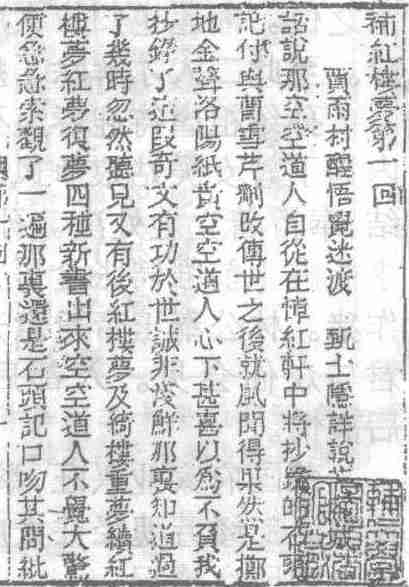 補紅樓夢第一回
賈雨村醒悟覺迷渡　甄士隱詳說
話說那空空道人自從在悼紅軒中將抄錄的石頭
記付與曹雪芹刪改傳世之後就風聞得果然是擲
地金聲洛陽紙貴空空道人心下甚喜以為不負我
抄錄了這段奇文有功於世誠非淺鮮那裏知道過
了幾時忽然聽見又有後紅樓夢及綺樓重夢續紅
樓夢紅夢復夢四種新書出來空空道人不覺大驚
便急急索觀了一遍那裏還是石頭記口吻其間紕